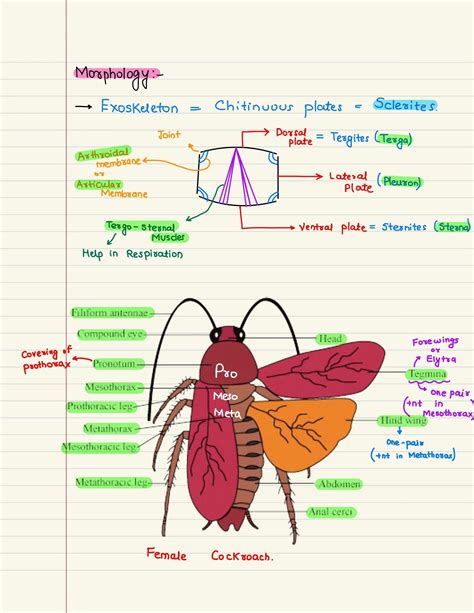 Morphology:-
→ Exoskeleton = Chitinuous plates = Sclerites.
Joint
Dorsal plate = Tergites (Terga)
Arthroidal membrane
or
Articular Membrane
Lateral Plate (Pleuron)
Tergo-Sternal Muscles
Ventral plate = Sternites (Sterna)
Help in Respiration
Filiform antennae
Compound eye
Head
Forewings
or
Elytra
Covering of prothorax
Pronotum
Pro
Tegmina
Mesothorax
Meso
one pair
(+nt in Mesothorax)
Prothoracic leg
Meta
Metathorax
Hind wing
Mesothoracic leg
one-pair
(+nt in Metathorax)
Metathoracic leg
Abdomen
Anal cerci
Female Cockroach.